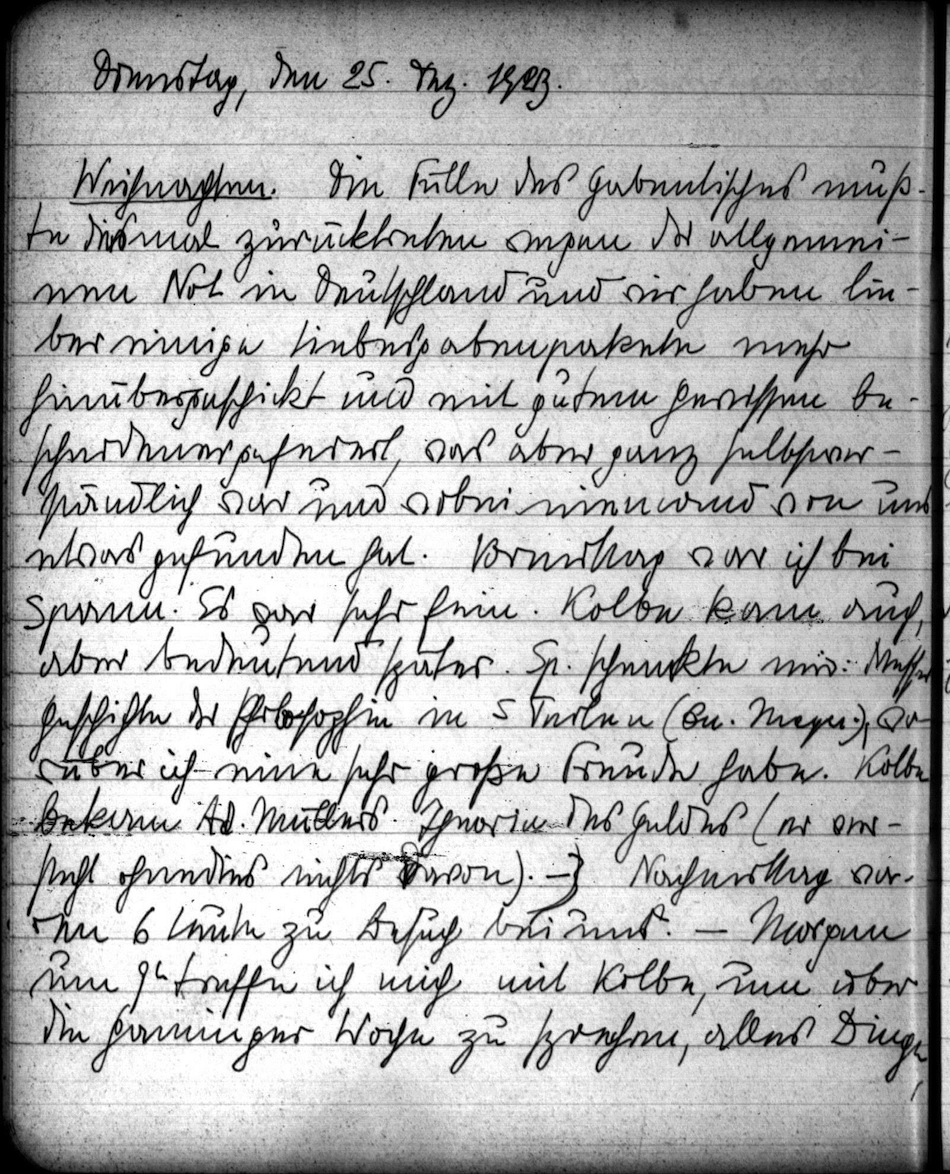 Dienstag, den 25. Dez. 1923.
Weihnachten. Die Fülle des Gabentisches muß-
te diesmal zurücktreten wegen der allgemei-
nen Not in Deutschland und wir haben lie-
ber einige Liebesgabenpakete mehr
hinübergeschickt und mit gutem Gewissen be-
scheidener gefeiert, was aber ganz selbstver-
ständlich war und wobei niemand von uns
etwas gefunden hat. Vormittag war ich bei
Spann. Es war sehr fein. Kolbe kam auch,
aber bedeutend später. Sp. schenkte mir: Messer
Geschichte der Philosophie in 5 Teilen (Qu. Meyer), wo-
rüber ich eine sehr große Freude habe. Kolbe
bekam Ad. Müllers Theorie des Geldes (er ver-
steht ohnedies nichts davon). – Nachmittag wa-
ren 6 Leute zu Besuch bei uns. – Morgen
um 9h treffe ich mich mit Kolbe, um über
die Gaminger Woche zu sprechen, alles Dinge,